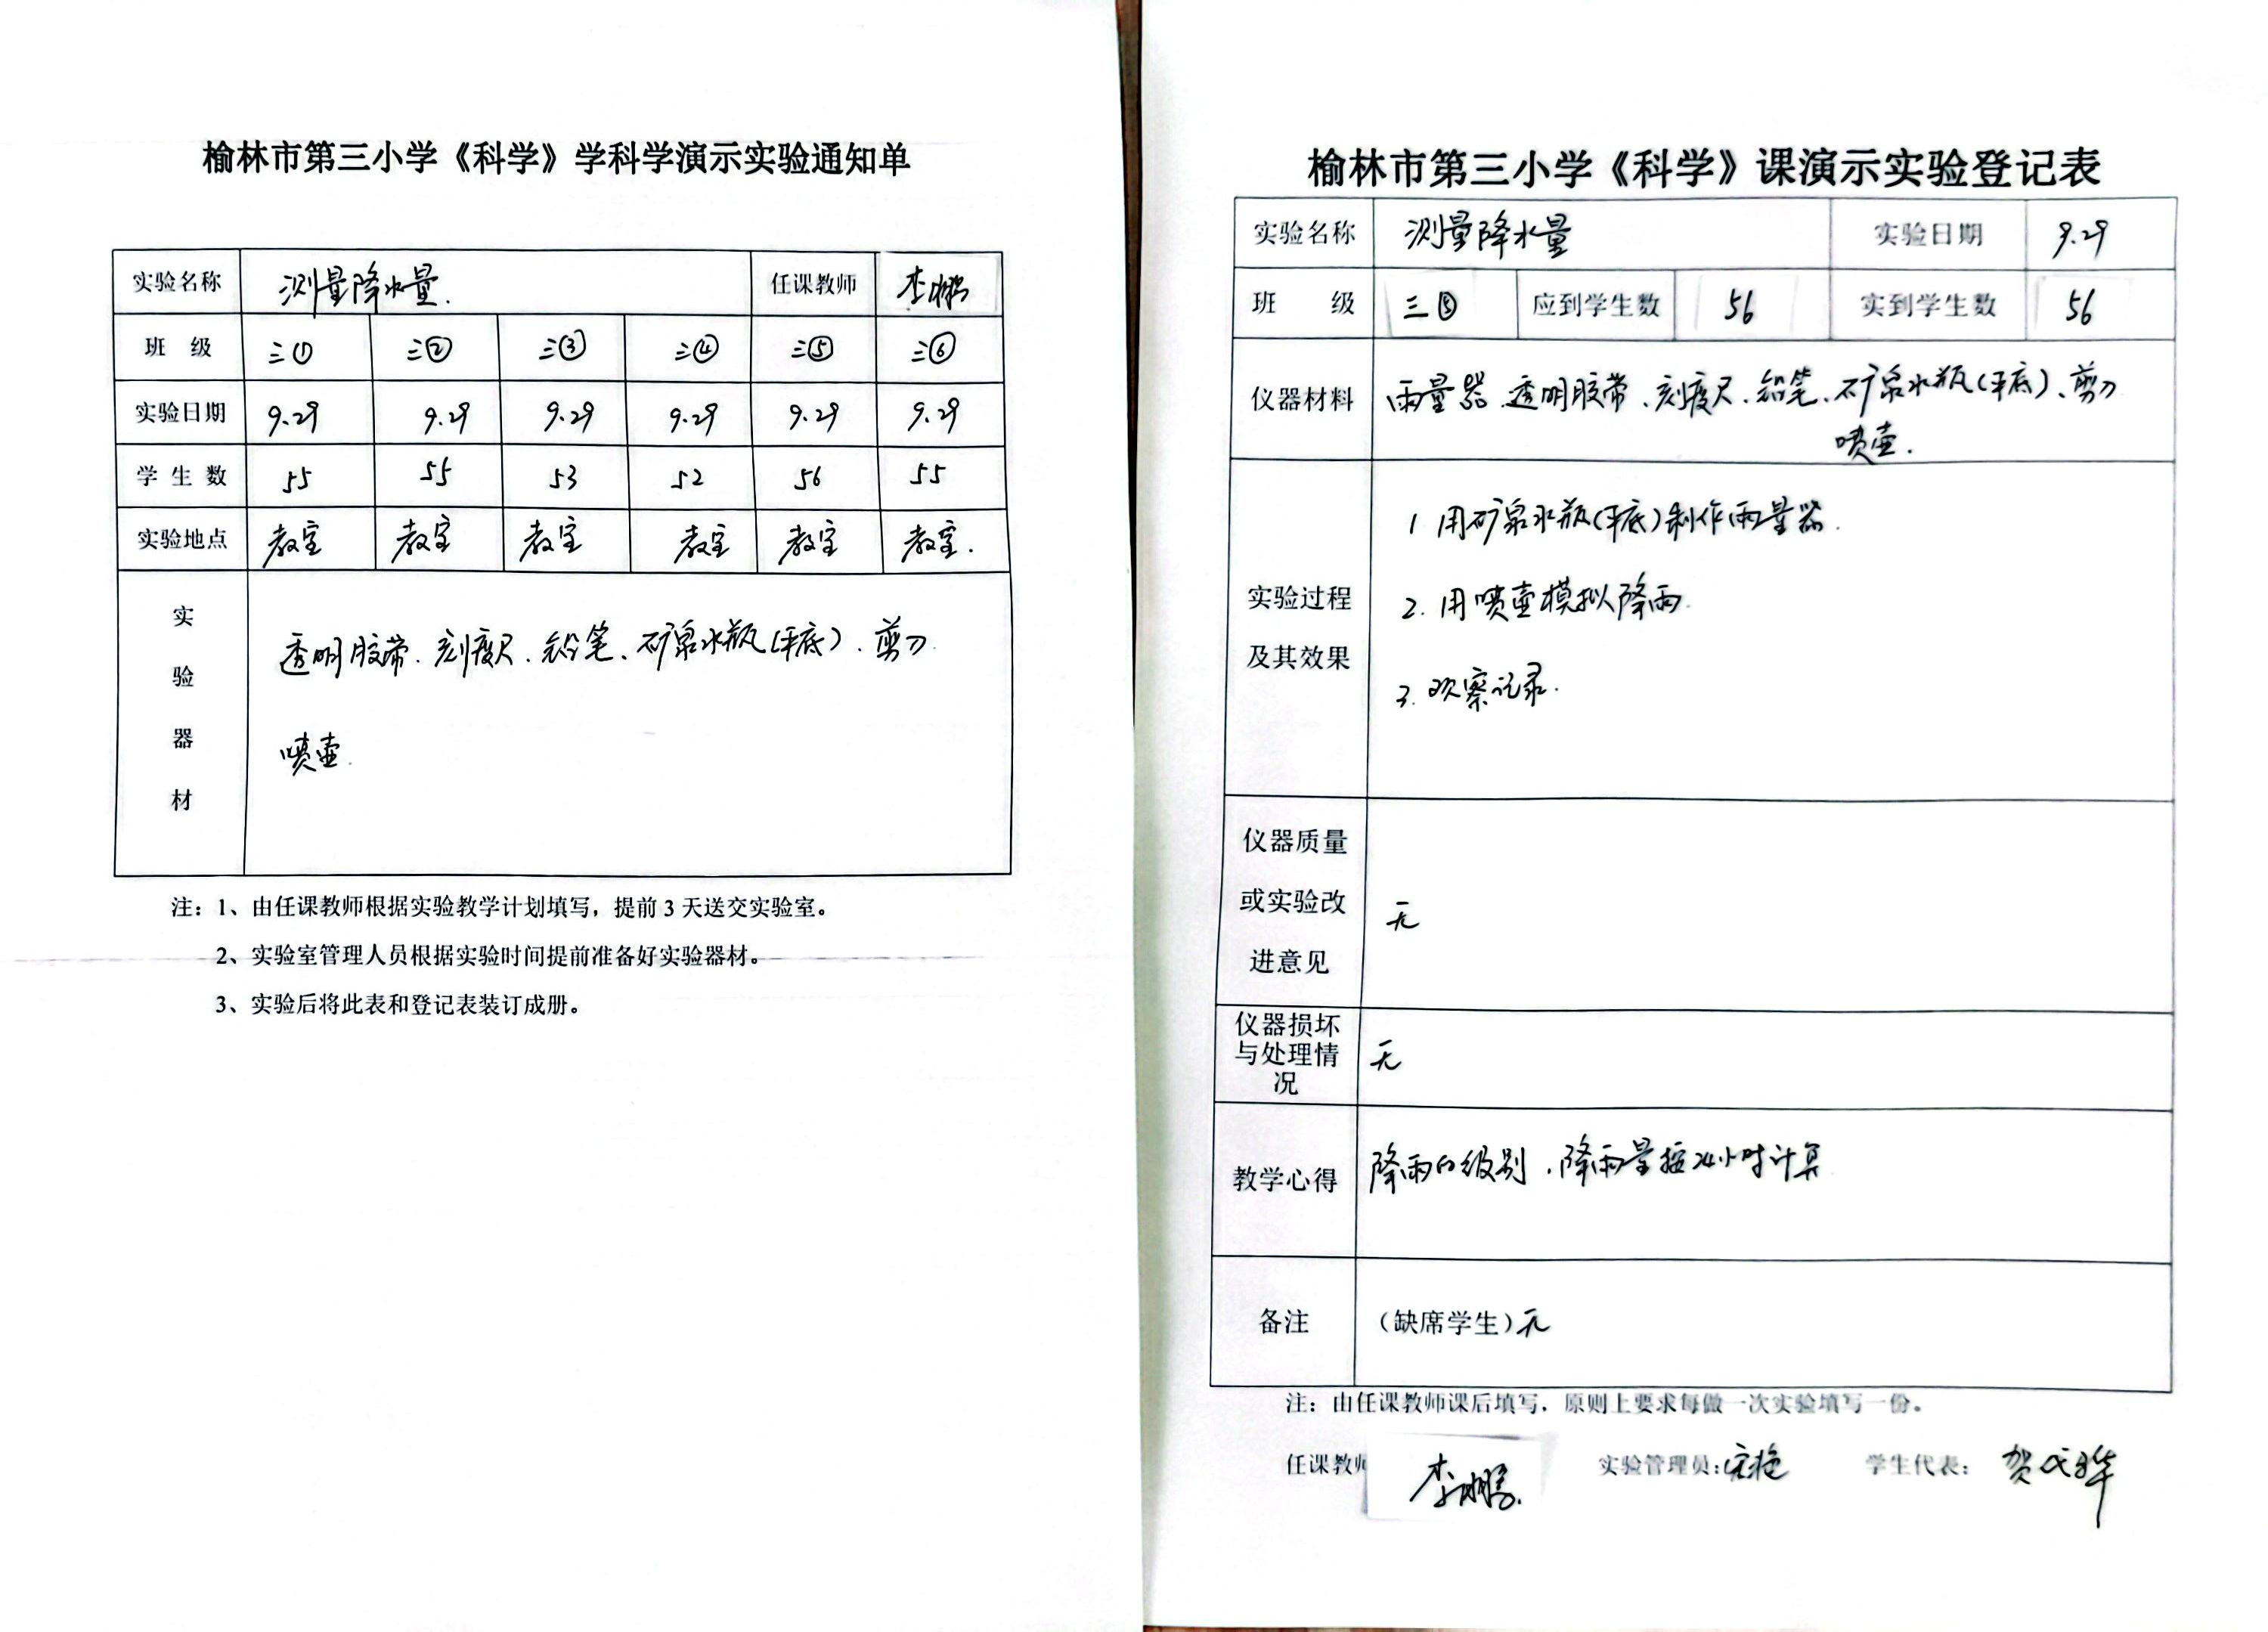 榆林市第三小学《科学》学科学演示实验通知单
实验名称 测量降水量. 任课教师 李鹏
班 级 三① 三② 三③ 三④ 三⑤ 三⑥
实验日期 9.29 9.29 9.29 9.29 9.29 9.29
学 生 数 55 55 53 52 56 55
实验地点 教室 教室 教室 教室 教室 教室.
实
验
器
材
透明胶带、刻度尺、铅笔、矿泉水瓶(平底)、剪刀
喷壶.
注：1、由任课教师根据实验教学计划填写，提前 3 天送交实验室。
2、实验室管理人员根据实验时间提前准备好实验器材。
3、实验后将此表和登记表装订成册。
榆林市第三小学《科学》课演示实验登记表
实验名称 测量降水量 实验日期 9.29
班 级 三⑤ 应到学生数 56 实到学生数 56
仪器材料 雨量器、透明胶带、刻度尺、铅笔、矿泉水瓶(平底)、剪刀
喷壶.
实验过程
及其效果
1 用矿泉水瓶(平底)制作雨量器.
2. 用喷壶模拟降雨.
3. 观察记录.
仪器质量
或实验改
进意见
无
仪器损坏
与处理情
况
无
教学心得 降雨的级别、降雨量按24小时计算
备注 （缺席学生）无
注：由任课教师课后填写，原则上要求每做一次实验填写一份。
任课教师 李鹏. 实验管理员: 学生代表： 贺